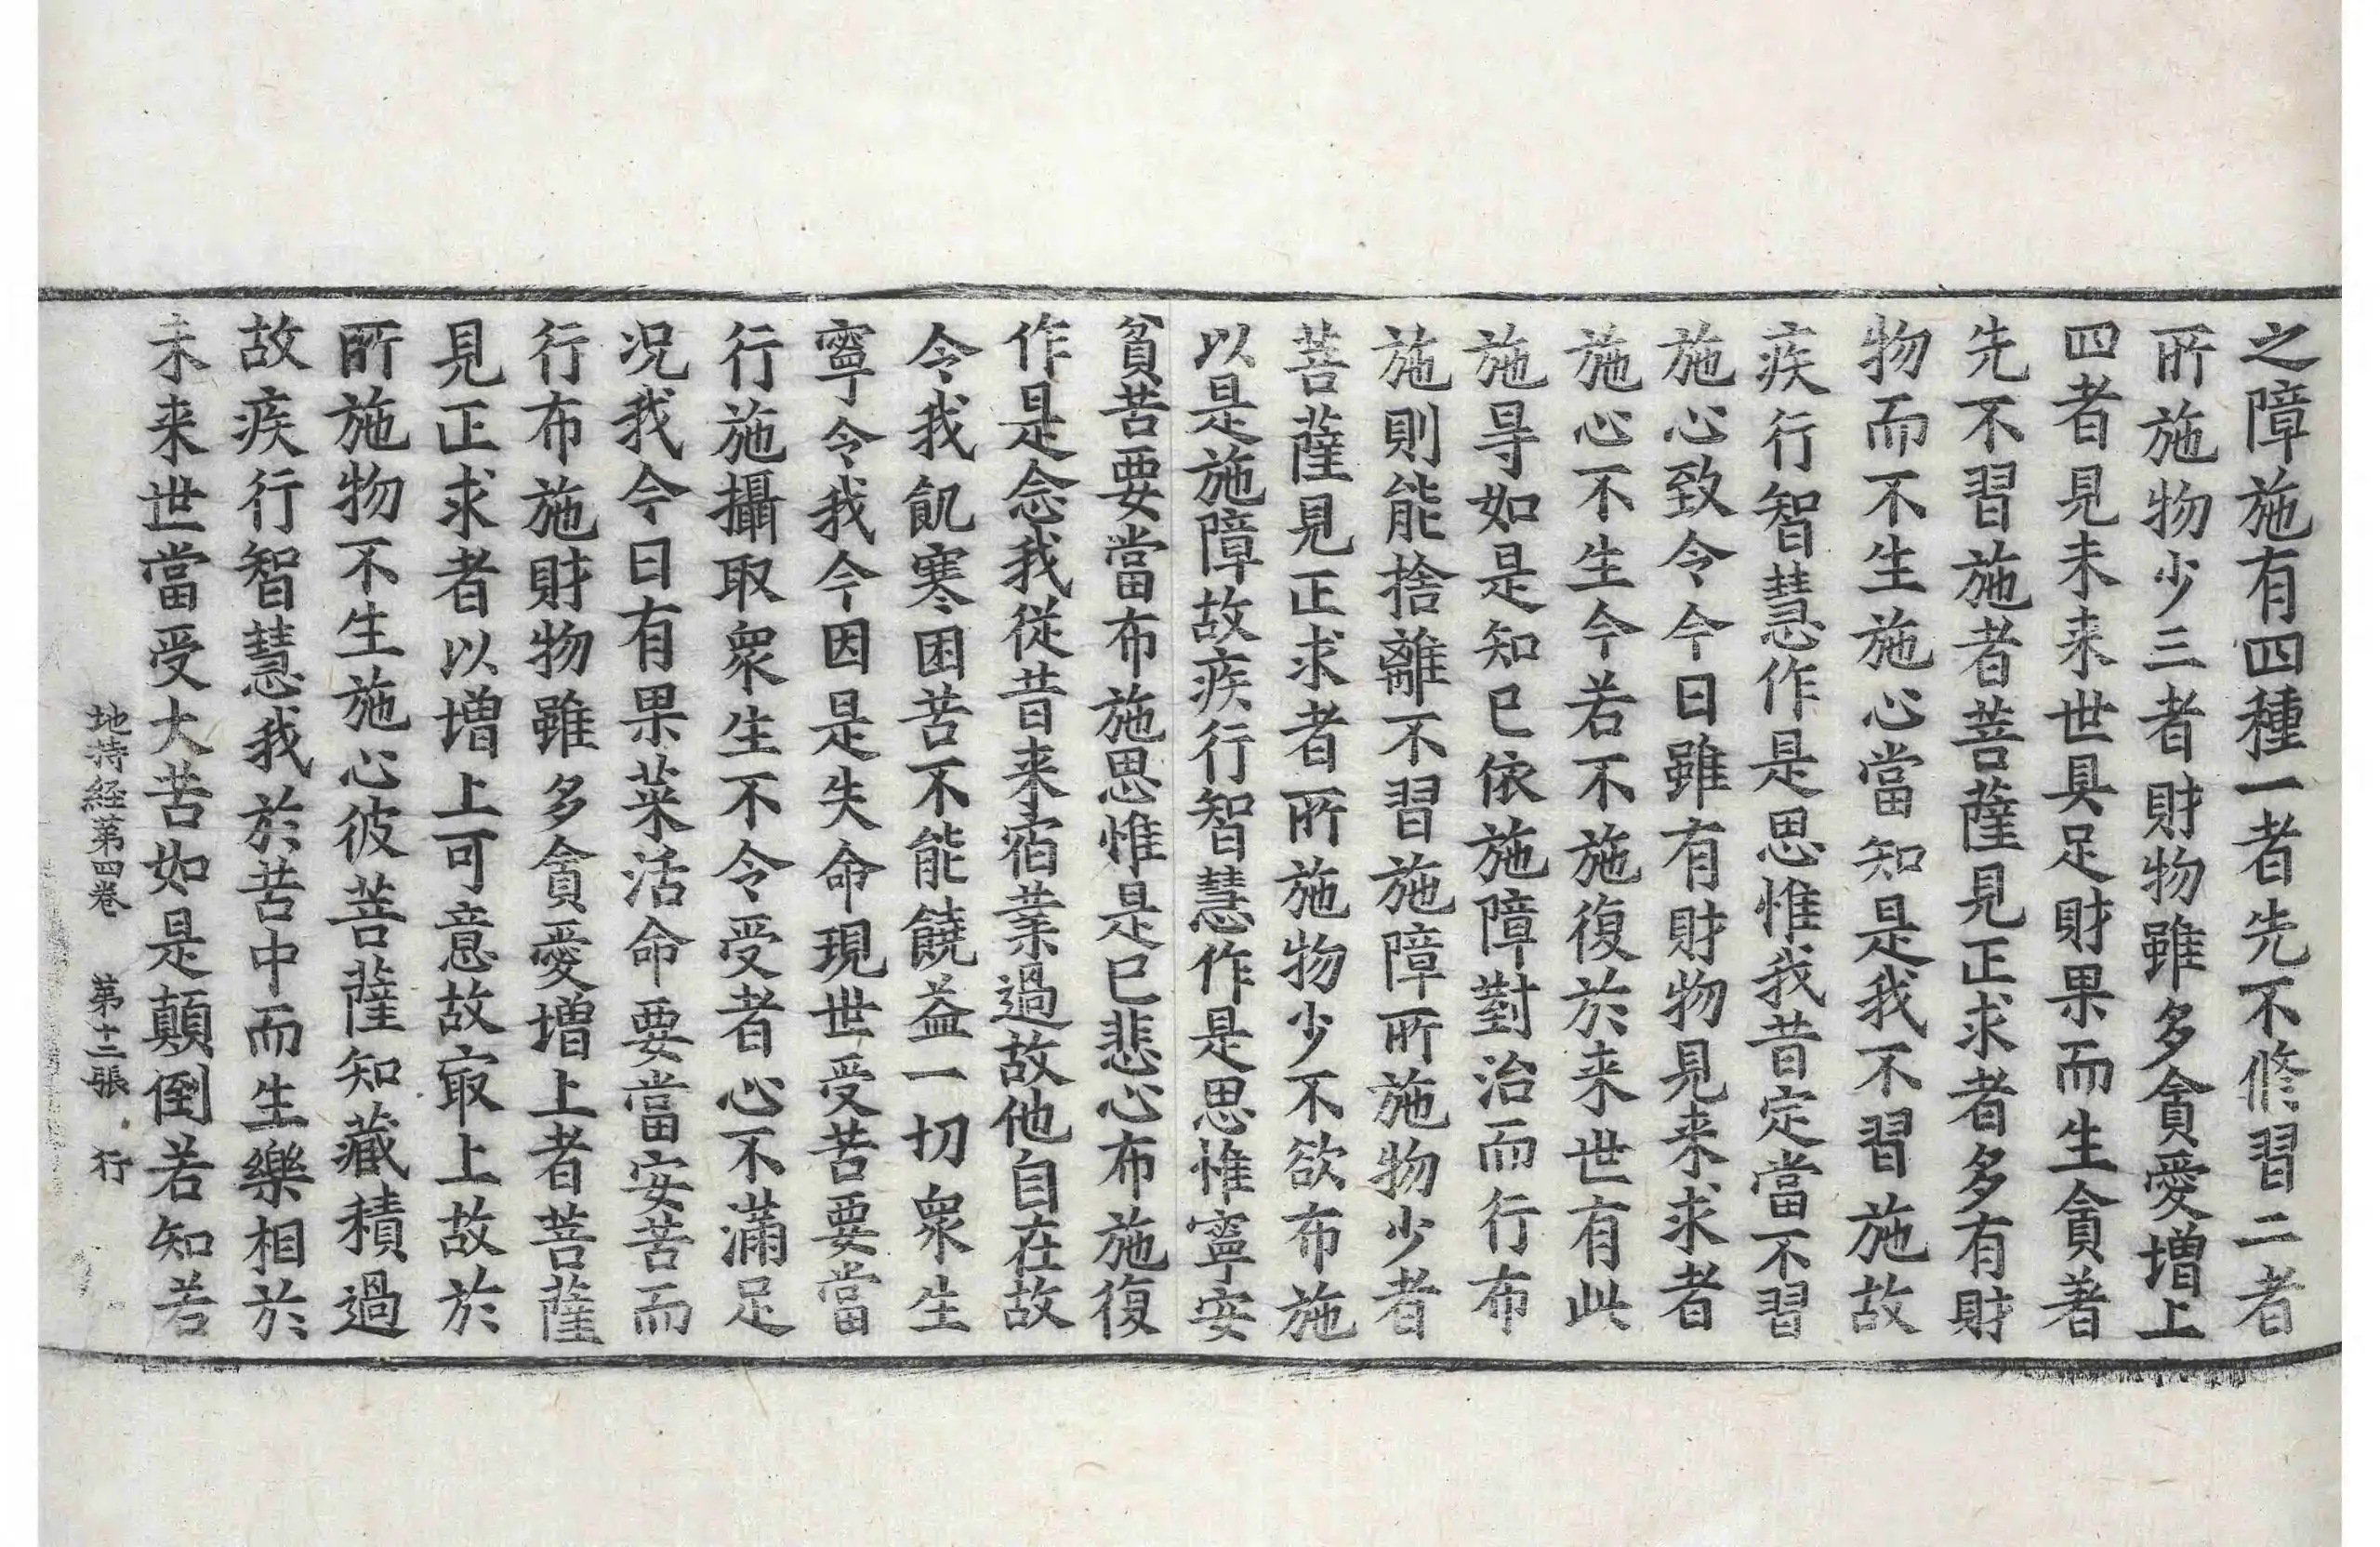 之障施有四種一者先不修習二者
所施物少三者財物雖多貪愛增上
四者見未来世具足財果而生貪著
先不習施者菩薩見正求者多有財
物而不生施心當知是我不習施故
疾行智慧作是思惟我昔定當不習
施心致令今日雖有財物見来求者
施心不生今若不施復於来世有此
施㝵如是知已依施障對治而行布
施則能捨離不習施障所施物少者
菩薩見正求者所施物少不欲布施
以是施障故疾行智慧作是思惟寧安
貧苦要當布施思惟是已悲心布施復
作是念我從昔来宿業過故他自在故
令我飢寒困苦不能饒益一切衆生
寧令我今因是失命現世受苦要當
行施攝取衆生不令受者心不滿足
況我今日有果菜活命要當安苦而
行布施財物雖多貪愛增上者菩薩
見正求者以增上可意故㝡上故於
所施物不生施心彼菩薩知藏積過
故疾行智慧我於苦中而生樂相於
未来世當受大苦如是顛倒若知若
地持経第四卷　第十二張　行